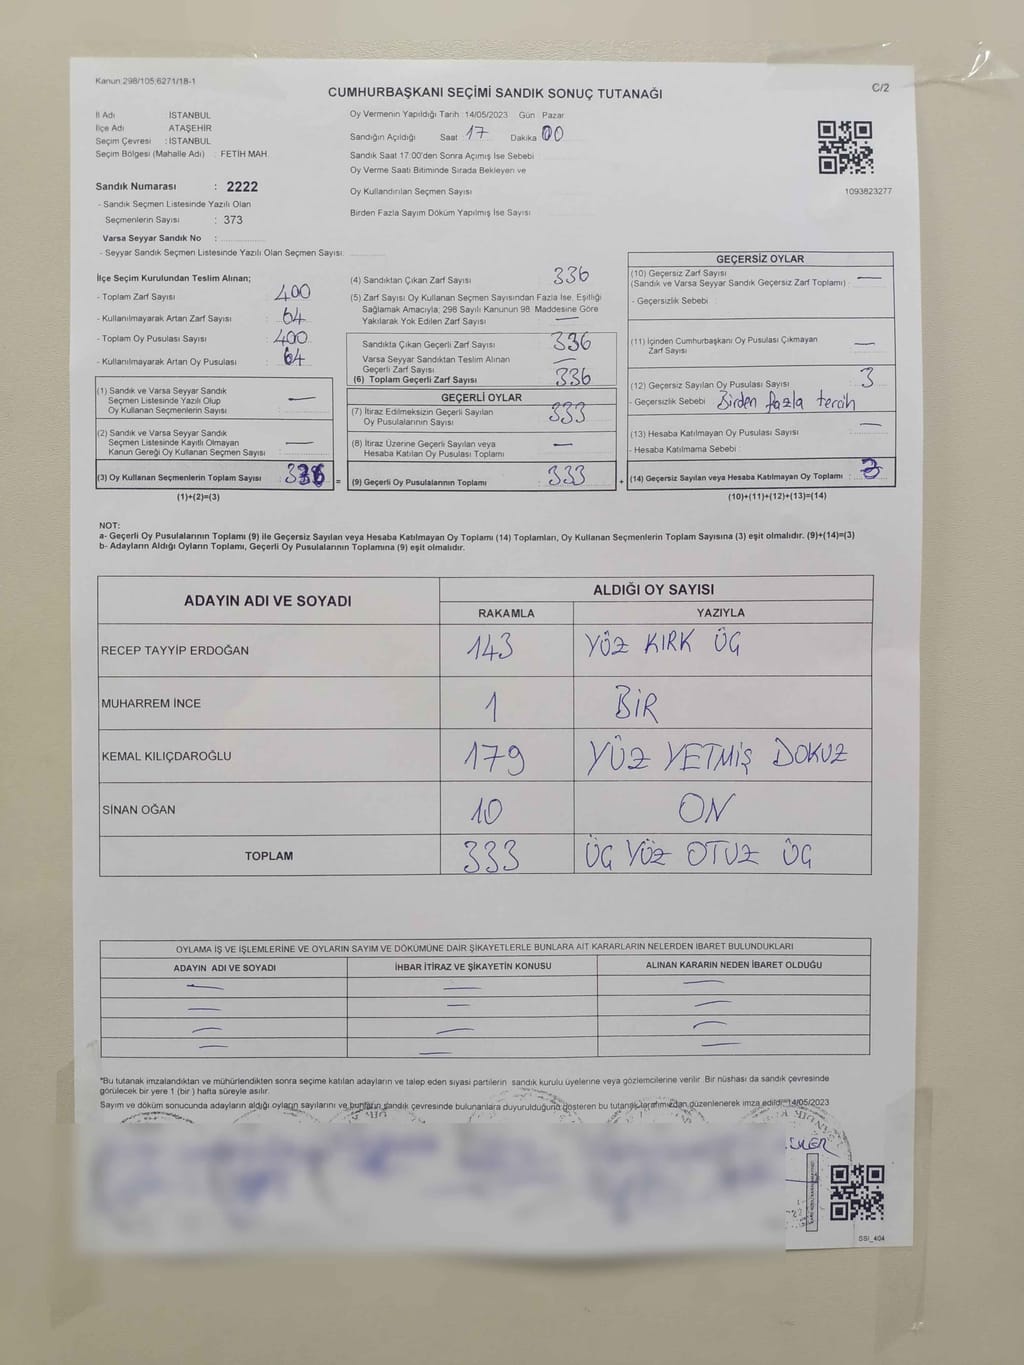 Kanun 298/105,6271/18-1
CUMHURBAŞKANI SEÇİMİ SANDIK SONUÇ TUTANAĞI
C/2
İl Adı İSTANBUL
İlçe Adı ATAŞEHİR
Seçim Çevresi : İSTANBUL
Seçim Bölgesi (Mahalle Adı) : FETİH MAH.
Sandık Numarası : 2222
- Sandık Seçmen Listesinde Yazılı Olan
Seçmenlerin Sayısı : 373
Varsa Seyyar Sandık No :
- Seyyar Sandık Seçmen Listesinde Yazılı Olan Seçmen Sayısı:
Oy Vermenin Yapıldığı Tarih 14/05/2023 Gün Pazar
Sandığın Açıldığı Saat 17 Dakika 00
Sandık Saat 17:00'den Sonra Açımış İse Sebebi
Oy Verme Saati Bitiminde Sırada Bekleyen ve
Oy Kullandırılan Seçmen Sayısı
Birden Fazla Sayım Döküm Yapılmış İse Sayısı
1093823277
İlçe Seçim Kurulundan Teslim Alınan;
- Toplam Zarf Sayısı 400
- Kullanılmayarak Artan Zarf Sayısı 64
- Toplam Oy Pusulası Sayısı 400
- Kullanılmayarak Artan Oy Pusulası 64
(1) Sandık ve Varsa Seyyar Sandık
Seçmen Listesinde Yazılı Olup
Oy Kullanan Seçmenlerin Sayısı
(2) Sandık ve Varsa Seyyar Sandık
Seçmen Listesinde Kayıtlı Olmayan
Kanun Gereği Oy Kullanan Seçmen Sayısı
(3) Oy Kullanan Seçmenlerin Toplam Sayısı 336 =
(1)+(2)=(3)
(4) Sandıktan Çıkan Zarf Sayısı 336
(5) Zarf Sayısı Oy Kullanan Seçmen Sayısından Fazla İse, Eşitliği
Sağlamak Amacıyla; 298 Sayılı Kanunun 98. Maddesine Göre
Yakılarak Yok Edilen Zarf Sayısı
Sandıkta Çıkan Geçerli Zarf Sayısı 336
Varsa Seyyar Sandıktan Teslim Alınan
Geçerli Zarf Sayısı
(6) Toplam Geçerli Zarf Sayısı 336
GEÇERLİ OYLAR
(7) İtiraz Edilmeksizin Geçerli Sayılan
Oy Pusulalarının Sayısı 333
(8) İtiraz Üzerine Geçerli Sayılan veya
Hesaba Katılan Oy Pusulası Toplamı
(9) Geçerli Oy Pusulalarının Toplamı 333 +
GEÇERSİZ OYLAR
(10) Geçersiz Zarf Sayısı
(Sandık ve Varsa Seyyar Sandık Geçersiz Zarf Toplamı)
- Geçersizlik Sebebi
(11) İçinden Cumhurbaşkanı Oy Pusulası Çıkmayan
Zarf Sayısı
(12) Geçersiz Sayılan Oy Pusulası Sayısı 3
- Geçersizlik Sebebi Birden fazla tercih
(13) Hesaba Katılmayan Oy Pusulası Sayısı
- Hesaba Katılmama Sebebi
(14) Geçersiz Sayılan veya Hesaba Katılmayan Oy Toplamı : 3
(10)+(11)+(12)+(13)=(14)
NOT:
a- Geçerli Oy Pusulalarının Toplamı (9) ile Geçersiz Sayılan veya Hesaba Katılmayan Oy Toplamı (14) Toplamları, Oy Kullanan Seçmenlerin Toplam Sayısına (3) eşit olmalıdır. (9)+(14)=(3)
b- Adayların Aldığı Oyların Toplamı, Geçerli Oy Pusulalarının Toplamına (9) eşit olmalıdır.
ADAYIN ADI VE SOYADI ALDIĞI OY SAYISI
RAKAMLA YAZIYLA
RECEP TAYYİP ERDOĞAN 143 YÜZ KIRK ÜÇ
MUHARREM İNCE 1 BİR
KEMAL KILIÇDAROĞLU 179 YÜZ YETMİŞ DOKUZ
SİNAN OĞAN 10 ON
TOPLAM 333 ÜÇ YÜZ OTUZ ÜÇ
OYLAMA İŞ VE İŞLEMLERİNE VE OYLARIN SAYIM VE DÖKÜMÜNE DAİR ŞİKAYETLERLE BUNLARA AİT KARARLARIN NELERDEN İBARET BULUNDUKLARI
ADAYIN ADI VE SOYADI İHBAR İTİRAZ VE ŞİKAYETİN KONUSU ALINAN KARARIN NEDEN İBARET OLDUĞU
*Bu tutanak imzalandıktan ve mühürlendikten sonra seçime katılan adayların ve talep eden siyasi partilerin sandık kurulu üyelerine veya gözlemcilerine verilir. Bir nüshası da sandık çevresinde
görülecek bir yere 1 (bir) hafta süreyle asılır.
Sayım ve döküm sonucunda adayların aldığı oyların sayılarını ve bunların sandık çevresinde bulunanlara duyurulduğunu gösteren bu tutanak tarafımızdan düzenlenerek imza edildi. 14/05/2023
SSİ_404